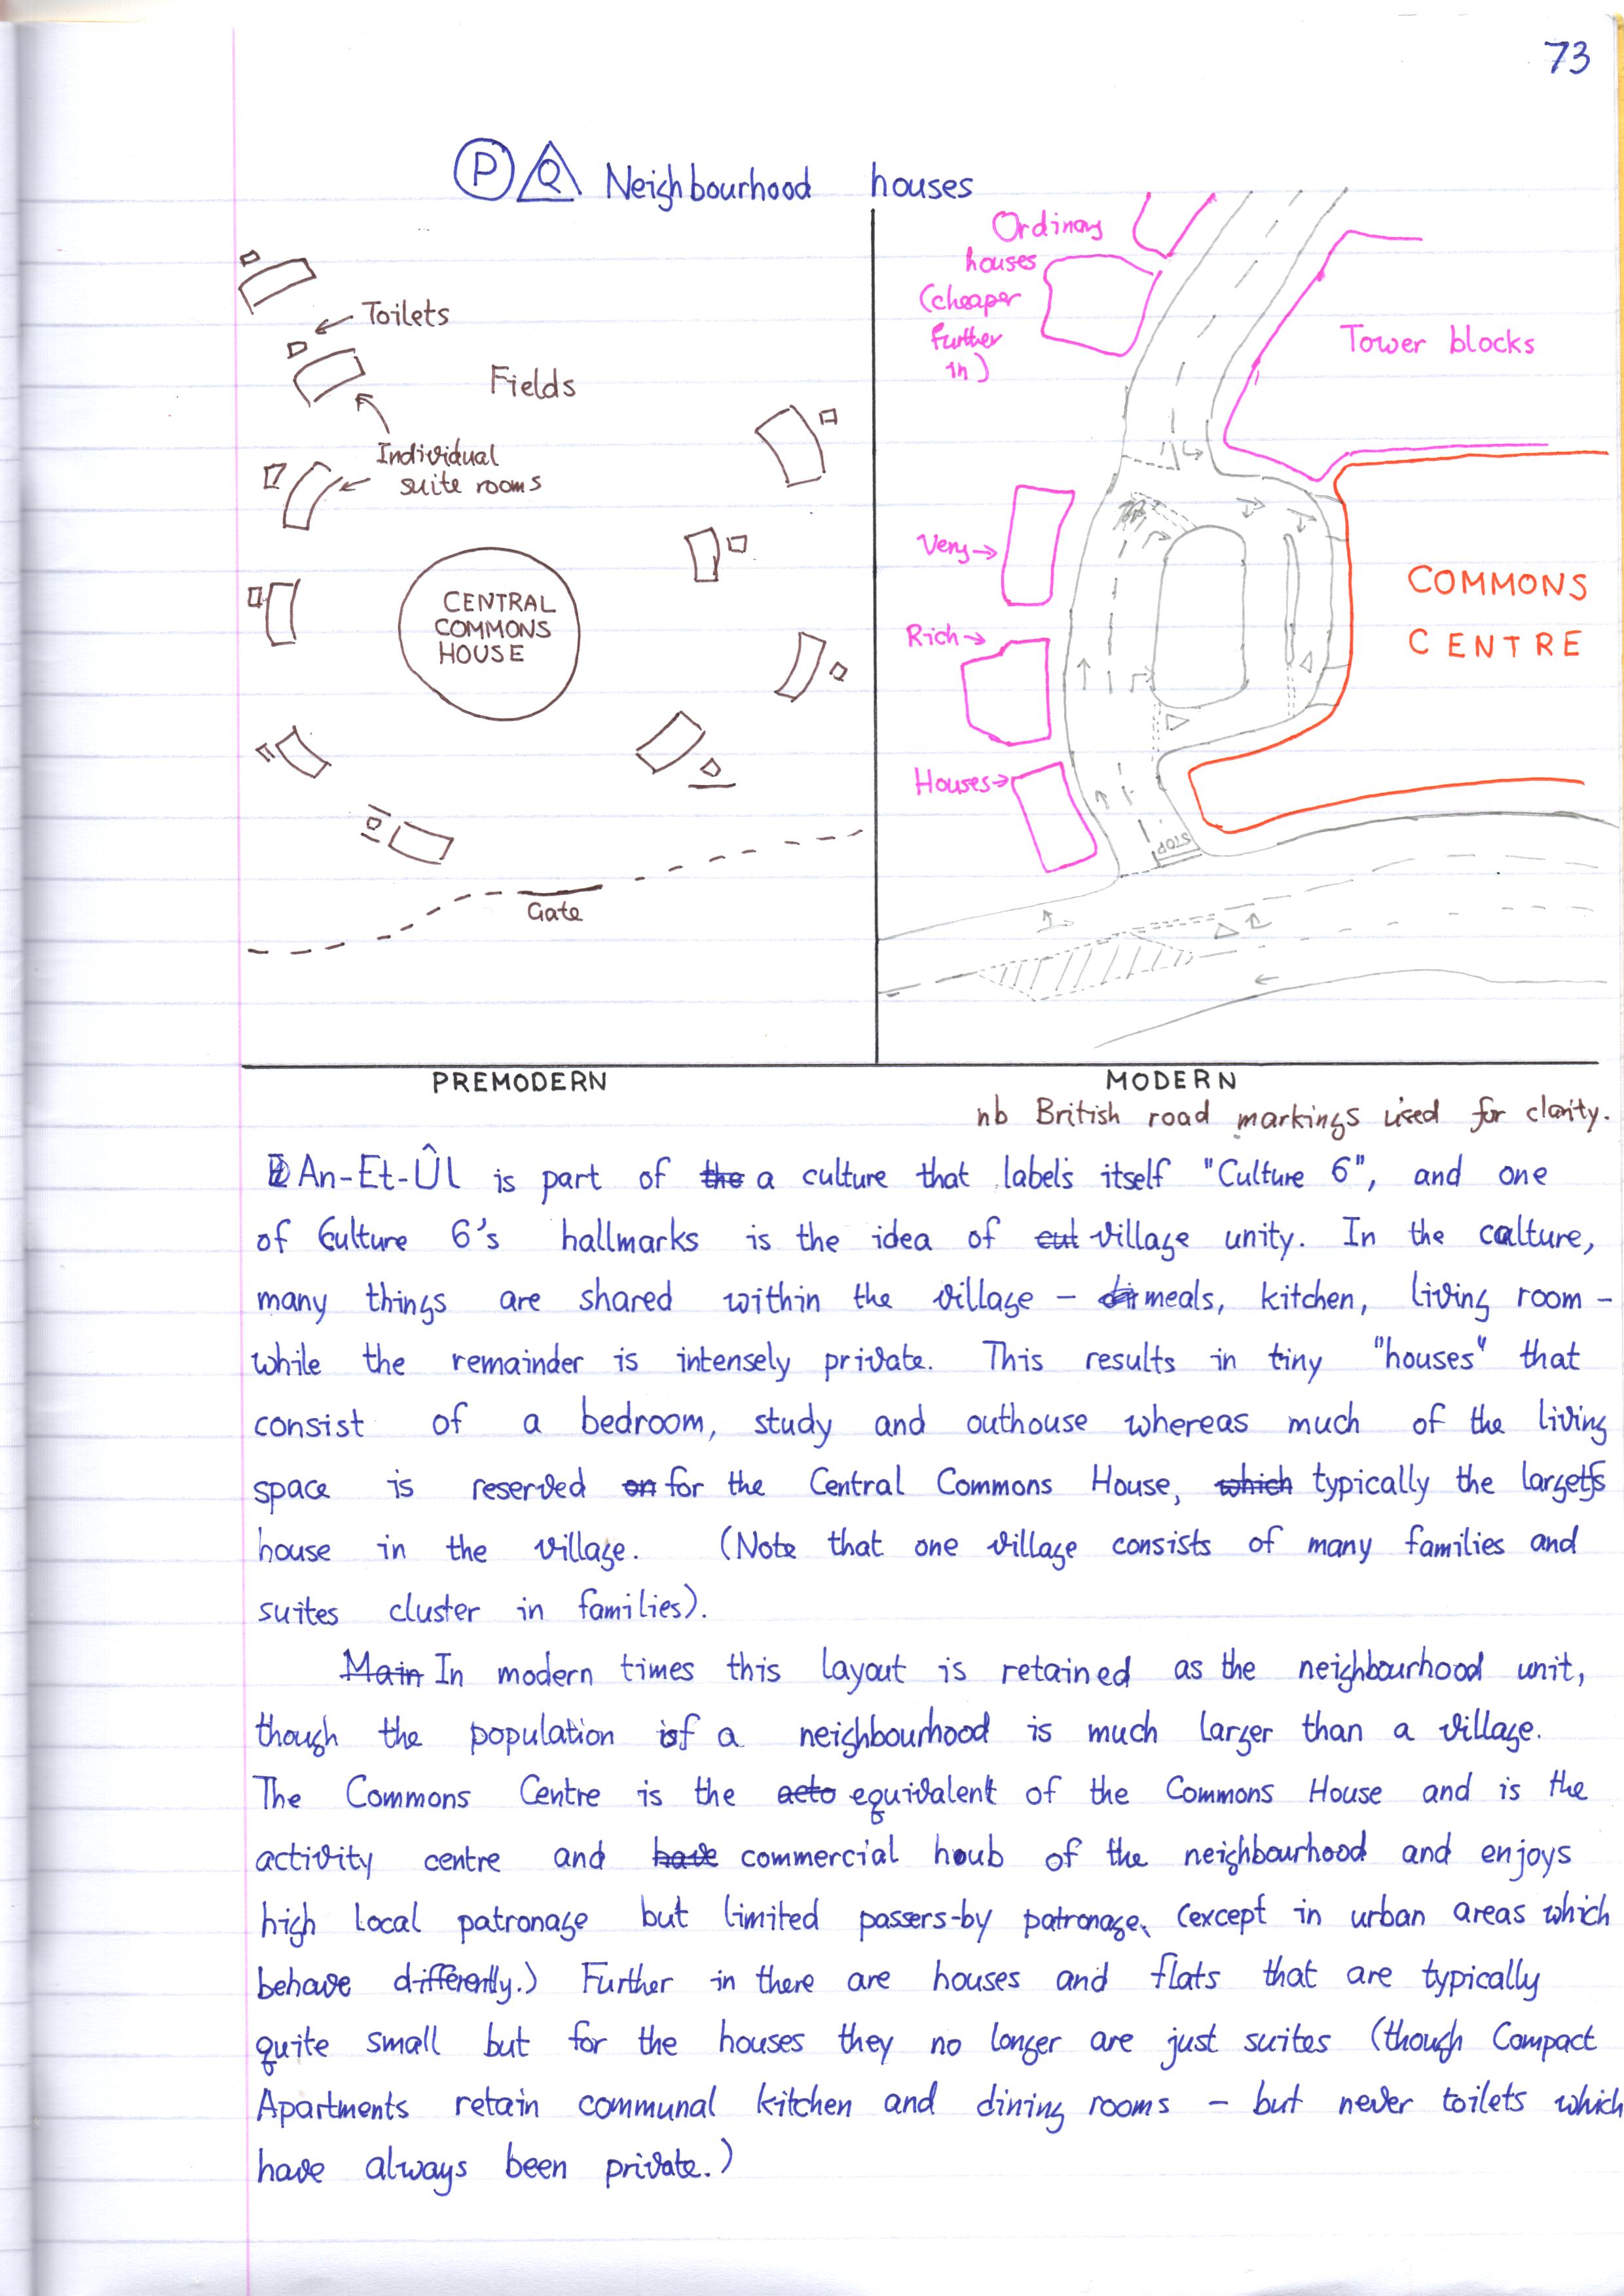 73
P Q Neighbourhood houses
Toilets
Fields
Individual
suite rooms
CENTRAL
COMMONS
HOUSE
Gate
PREMODERN
Ordinary
houses
(cheaper
further
in)
Tower blocks
Very
Rich
Houses
COMMONS
CENTRE
STOP
MODERN
nb British road markings used for clarity.
An-Et-Ûl is part of the a culture that labels itself "Culture 6", and one
of Culture 6's hallmarks is the idea of cut village unity. In the culture,
many things are shared within the village – meals, kitchen, living room –
while the remainder is intensely private. This results in tiny "houses" that
consist of a bedroom, study and outhouse whereas much of the living
space is reserved on for the Central Commons House, which typically the largets
house in the village. (Note that one village consists of many families and
suites cluster in families).
Main In modern times this layout is retained as the neighbourhood unit,
though the population of a neighbourhood is much larger than a village.
The Commons Centre is the acto equivalent of the Commons House and is the
activity centre and have commercial hub of the neighbourhood and enjoys
high local patronage but limited passers-by patronage. (except in urban areas which
behave differently.) Further in there are houses and flats that are typically
quite small but for the houses they no longer are just suites (though Compact
Apartments retain communal kitchen and dining rooms – but never toilets which
have always been private.)